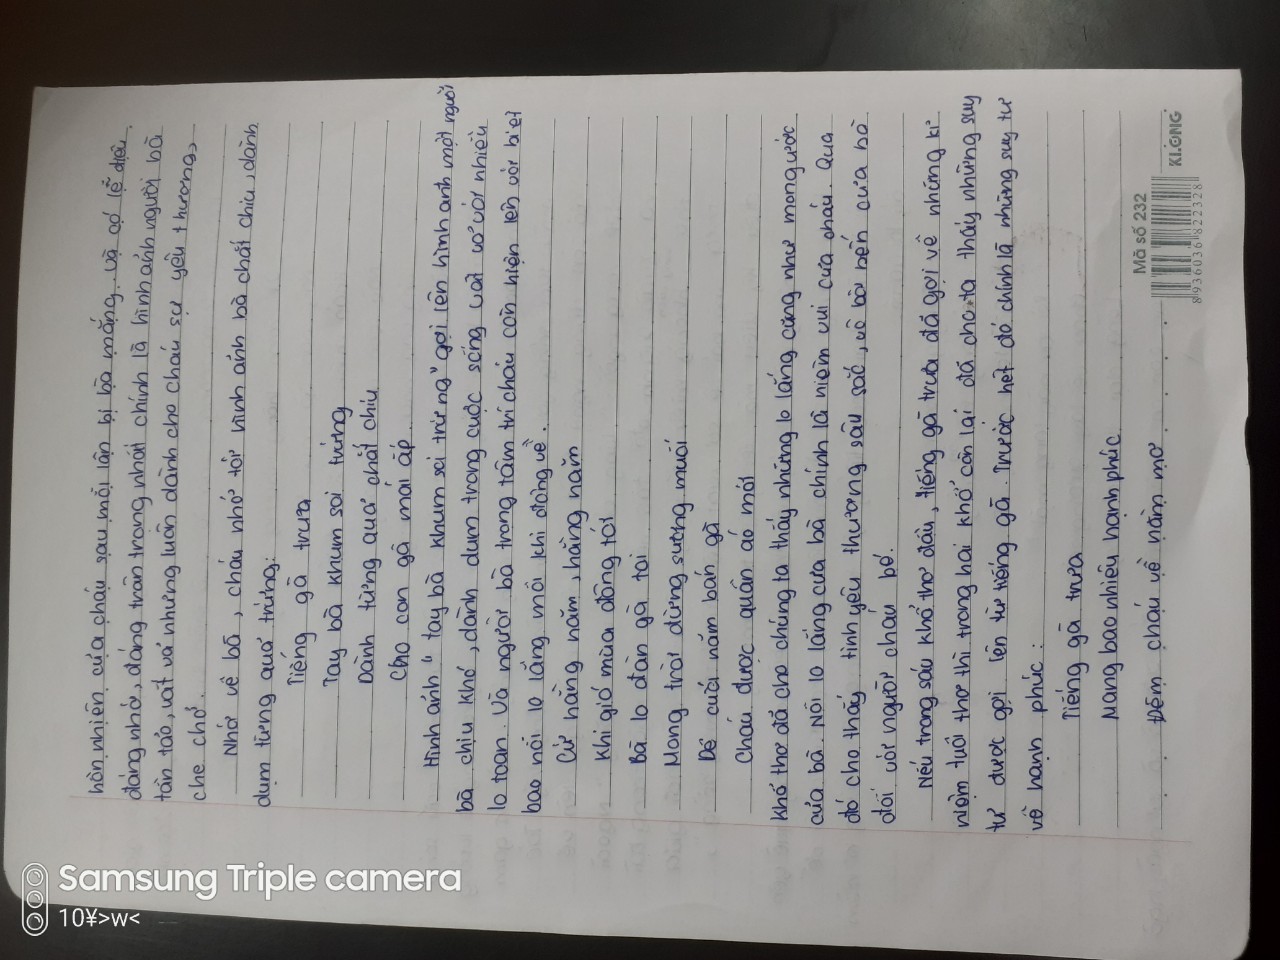 hồn nhiên của cháu sau mỗi lần bị bà mắng. và có lẽ điều
đáng nhớ, đáng trân trọng nhất chính là hình ảnh người bà
tần tảo, vất vả nhưng luôn dành cho cháu sự yêu thương,
che chở.
Nhớ về bà, cháu nhớ tới hình ảnh bà chắt chiu, dành
dụm từng quả trứng:
Tiếng gà trưa
Tay bà khum soi trứng
Dành từng quả chắt chiu
Cho con gà mái ấp
Hình ảnh "tay bà khum soi trứng" gợi lên hình ảnh một người
bà chịu khó, dành dụm trong cuộc sống vất vả với nhiều
lo toan. Và người bà trong tâm trí cháu còn hiện lên với biết
bao nỗi lo lắng mỗi khi đông về.
Cứ hằng năm, hằng năm
Khi gió mùa đông tới
Bà lo đàn gà toi
Mong trời đừng sương muối
Để cuối năm bán gà
Cháu được quần áo mới
Khổ thơ đã cho chúng ta thấy những lo lắng cũng như mong ước
của bà. Nỗi lo lắng của bà chính là niềm vui của cháu. Qua
đó cho thấy tình yêu thương sâu sắc, vô bờ bến của bà
đối với người cháu bé.
Nếu trong sáu khổ thơ đầu, tiếng gà trưa đã gợi về những kỉ
niệm tuổi thơ thì trong hai khổ còn lại đã cho ta thấy những suy
tư được gợi lên từ tiếng gà. Trước hết đó chính là những suy tư
về hạnh phúc:
Tiếng gà trưa
Mang bao nhiêu hạnh phúc
Đêm cháu về nằm mơ
Mã số 232
8936036822328
KLONG
Samsung Triple camera
10¥>w<